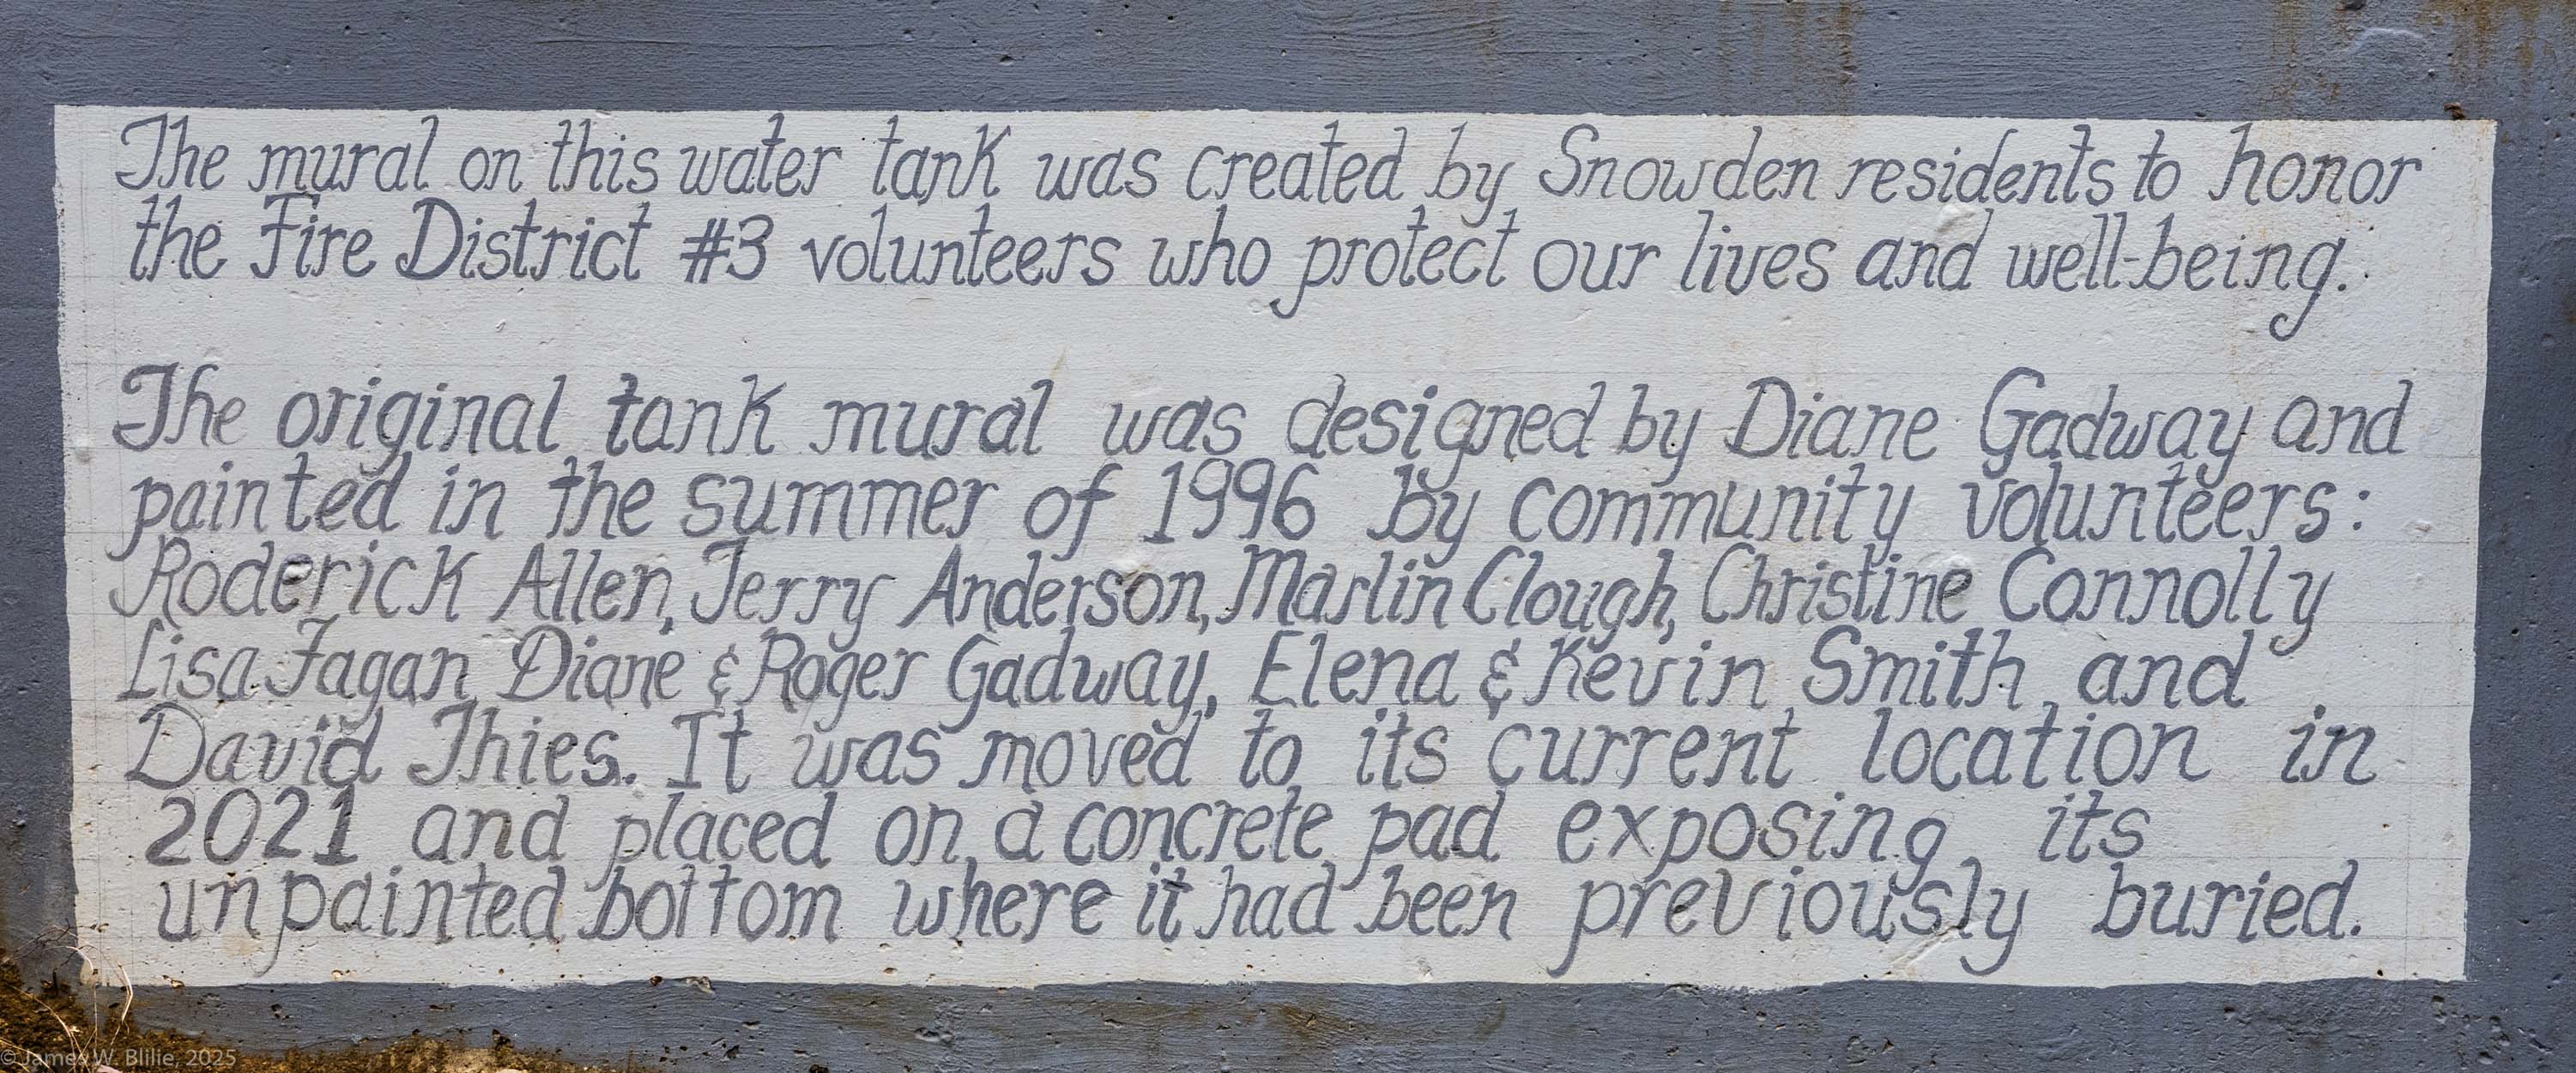 The mural on this water tank was created by Snowden residents to honor
the Fire District #3 volunteers who protect our lives and well-being.
The original tank mural was designed by Diane Gadway and
painted in the summer of 1996 by community volunteers:
Roderick Allen, Jerry Anderson, Marlin Clough, Christine Connolly
Lisa Fagan, Diane & Roger Gadway, Elena & Kevin Smith, and
David Thies. It was moved to its current location in
2021 and placed on a concrete pad exposing its
unpainted bottom where it had been previously buried.
© James W. Blilie, 2025